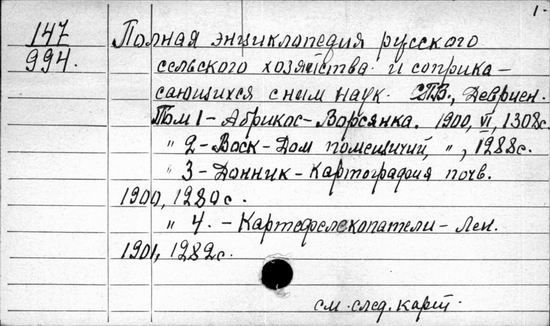 1-
147
994.
Полная энциклопедия русского
сельского хозяйства и соприка-
сающихся с ним наук. СПБ., Девриен.
Том 1 - Абрикос - Ворсянка. 1900, VI, 1308с.
" 2 - Воск - Дом помещичий, " , 1288с.
" 3 - Донник - Картография почв.
1900, 1280с.
" 4. - Картофелекопатели - Лен.
1901, 1282с.
см. след. карт.